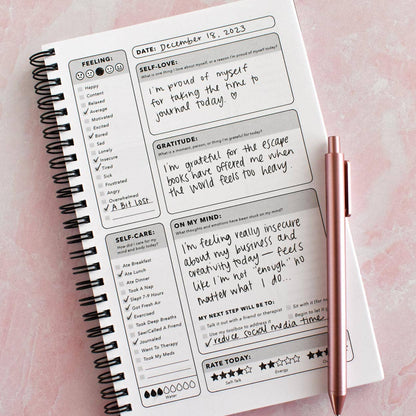 DATE: December 18, 2023
FEELING:
Happy
Content
Relaxed
✓ Average
Motivated
Excited
✓ Bored
Sad
Lonely
✓ Insecure
✓ Tired
Sick
Frustrated
Angry
Overwhelmed
✓ A Bit Lost
SELF-LOVE:
What is one thing I love about myself, or a reason I'm proud of myself today?
I'm proud of myself
for taking the time to
journal today. ♡
GRATITUDE:
What is a moment, person, or thing I'm grateful for today?
I'm grateful for the escape
books have offered me when
the world feels too heavy.
SELF-CARE:
How did I care for my
mind and body today?
Ate Breakfast
✓ Ate Lunch
Ate Dinner
Took A Nap
✓ Slept 7-9 Hours
✓ Got Fresh Air
Exercised
Took Deep Breaths
Seen/Called A Friend
✓ Journaled
Went To Therapy
Took My Meds
Water
ON MY MIND:
What thoughts and emotions have been stuck on my mind?
I'm feeling really insecure
about my business and
creativity today – feels
like I'm not "enough" no
matter what I do...
MY NEXT STEP WILL BE TO:
Talk it out with a friend or therapist
Sit with it (for
Use my toolbox to address it
Begin to let it
✓ reduce social media time
RATE TODAY:
Self-Talk
Energy